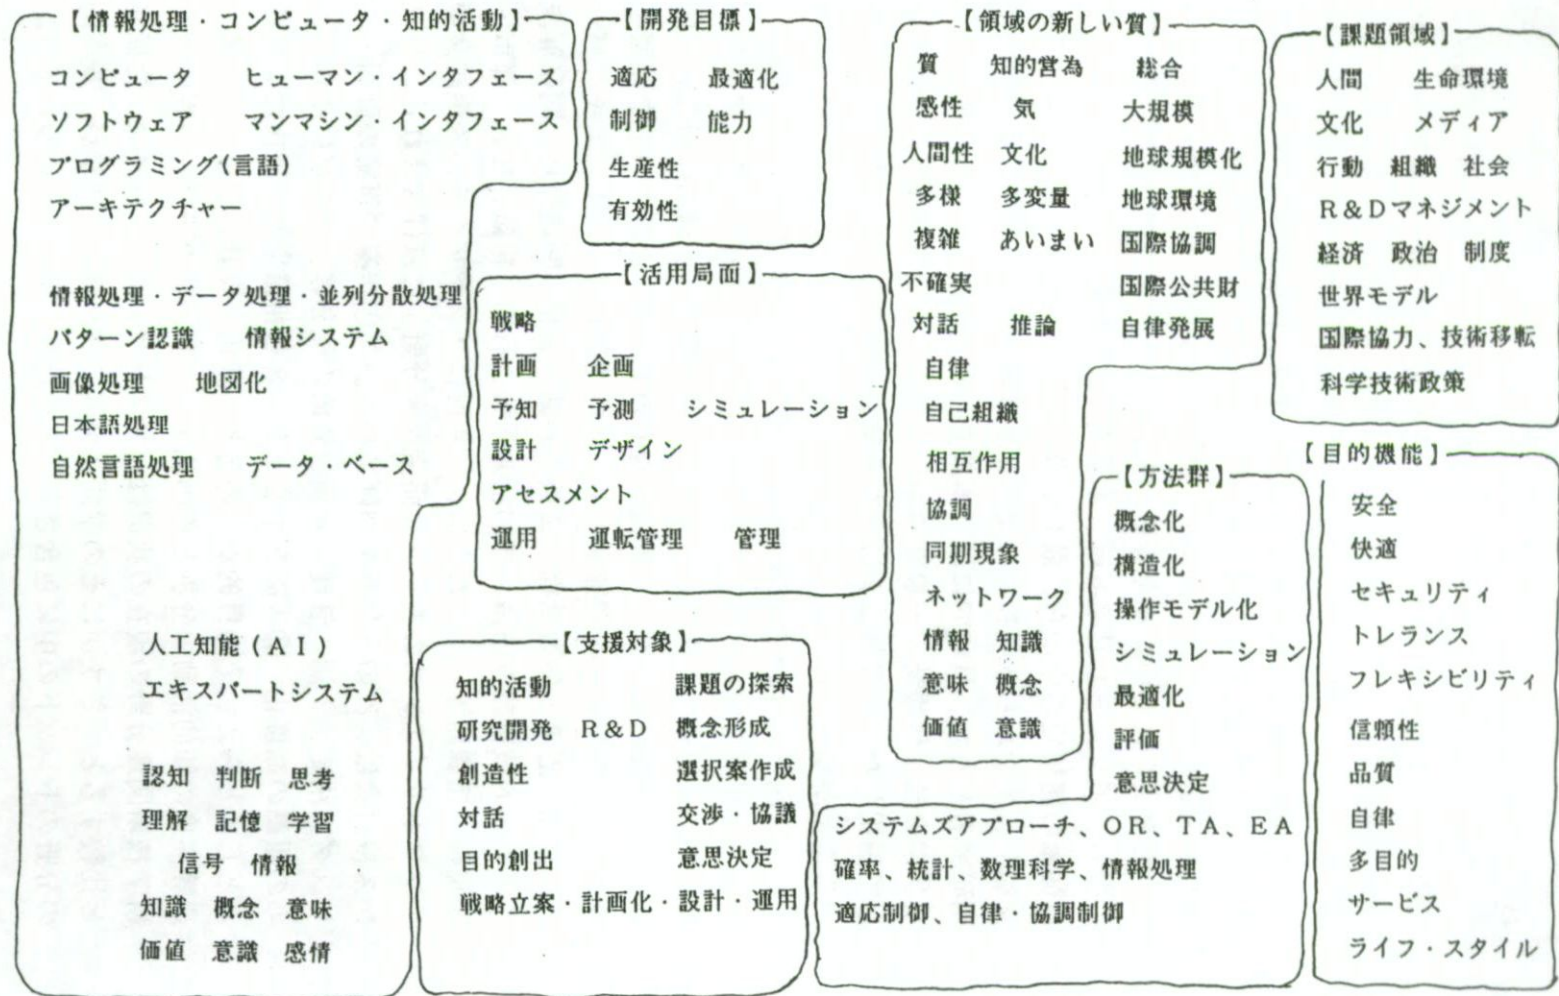 【情報処理・コンピュータ・知的活動】
コンピュータ ヒューマン・インタフェース
ソフトウェア マンマシン・インタフェース
プログラミング(言語)
アーキテクチャー
情報処理・データ処理・並列分散処理
パターン認識 情報システム
画像処理 地図化
日本語処理
自然言語処理 データ・ベース
人工知能(AI)
エキスパートシステム
認知 判断 思考
理解 記憶 学習
信号 情報
知識 概念 意味
価値 意識 感情
【開発目標】
適応 最適化
制御 能力
生産性
有効性
【活用局面】
戦略
計画 企画
予知 予測 シミュレーション
設計 デザイン
アセスメント
運用 運転管理 管理
【支援対象】
知的活動 課題の探索
研究開発 R&D 概念形成
創造性 選択案作成
対話 交渉・協議
目的創出 意思決定
戦略立案・計画化・設計・運用
【領域の新しい質】
質 知的営為 総合
感性 気 大規模
人間性 文化 地球規模化
多様 多変量 地球環境
複雑 あいまい 国際協調
不確実 国際公共財
対話 推論 自律発展
自律
自己組織
相互作用
協調
同期現象
ネットワーク
情報 知識
意味 概念
価値 意識
【方法群】
概念化
構造化
操作モデル化
シミュレーション
最適化
評価
意思決定
システムズアプローチ、OR、TA、EA
確率、統計、数理科学、情報処理
適応制御、自律・協調制御
【課題領域】
人間 生命環境
文化 メディア
行動 組織 社会
R&Dマネジメント
経済 政治 制度
世界モデル
国際協力、技術移転
科学技術政策
【目的機能】
安全
快適
セキュリティ
トレランス
フレキシビリティ
信頼性
品質
自律
多目的
サービス
ライフ・スタイル